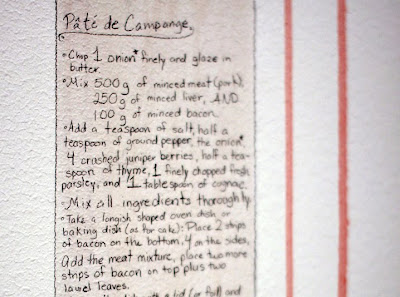 Pâté de Campange.
• Chop 1 onion* finely and glaze in
butter.
• Mix 500g of minced meat (pork),
250g of minced liver, AND
100g of minced bacon.
• Add a teaspoon of salt, half a
teaspoon of ground pepper, the onion*
4 crashed juniper berries, half a tea-
spoon of thyme, 1 finely chopped fresh
parsley, and 1 tablespoon of cognac.
• Mix all ingredients thoroughly.
• Take a longish shaped oven dish or
baking dish (as for cake): Place 2 strips
of bacon on the bottom, 4 on the sides,
add the meat mixture, place two more
strips of bacon on top plus two
laurel leaves.